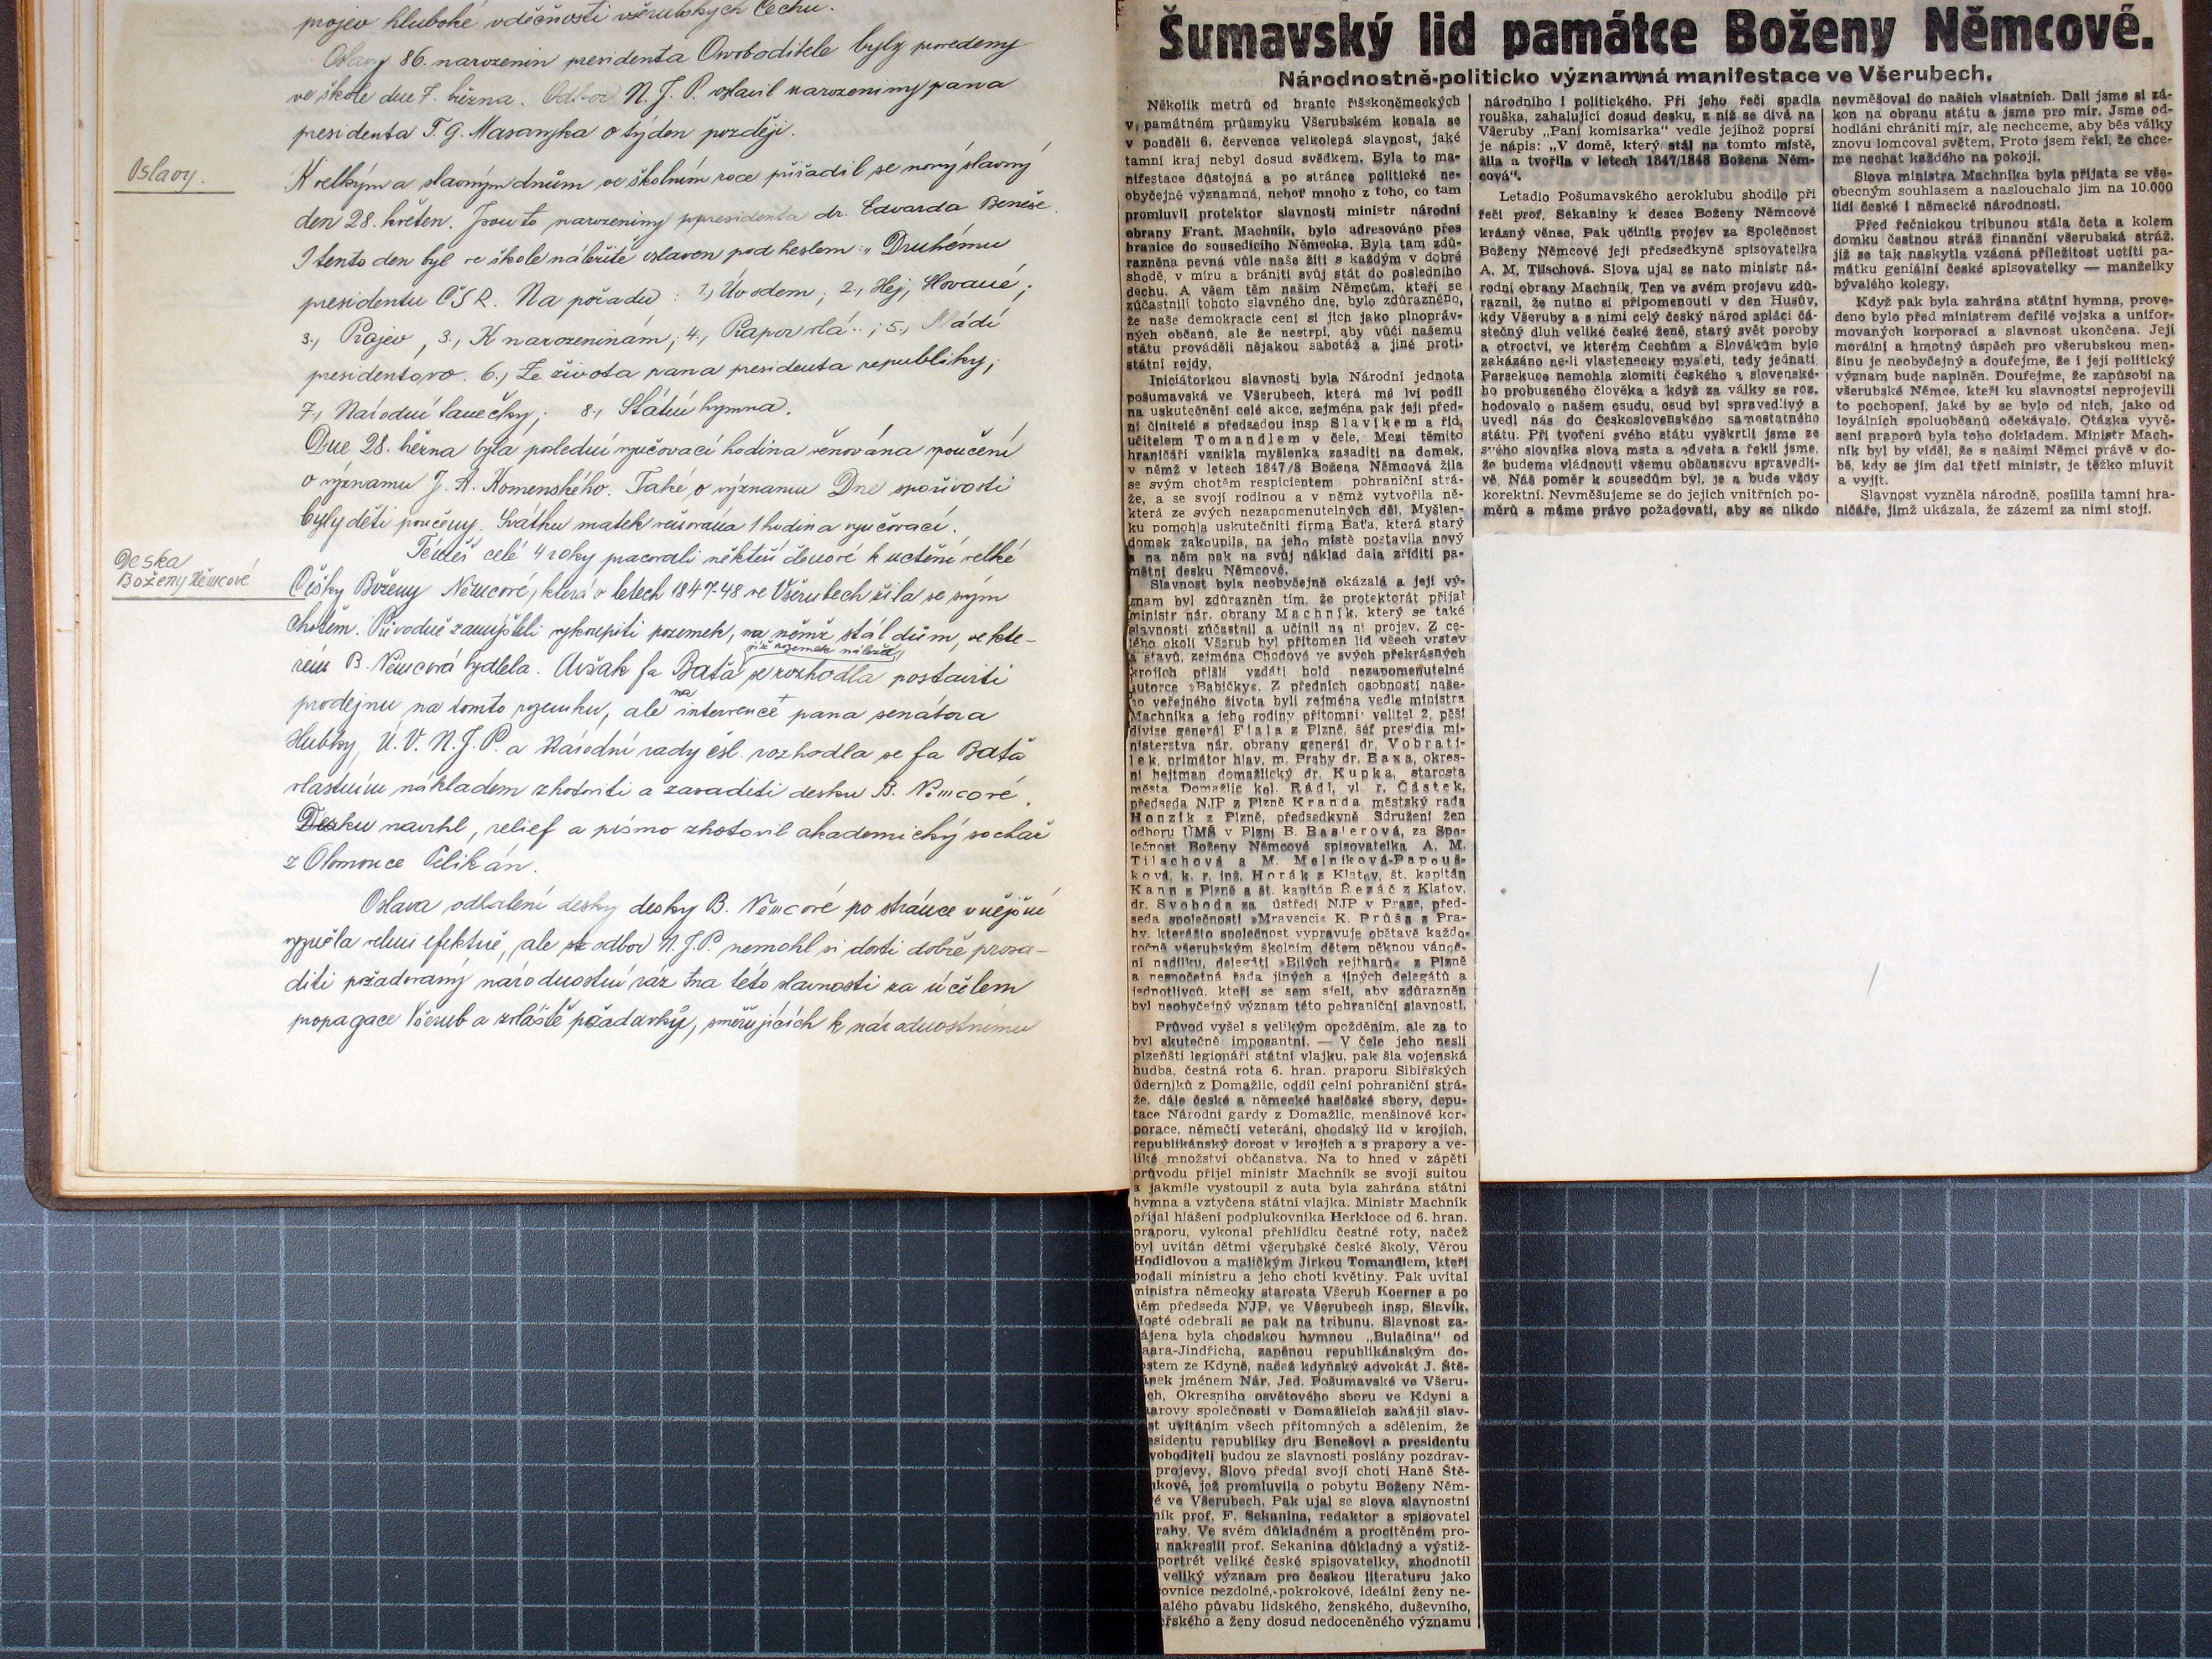 projev hluboké vděčnosti všerubských Čechů.
Oslavy 86. narozenin presidenta Osvoboditele byly provedeny
ve škole dne 7. března. Odbor N. J. P. oslavil narozeniny pana
presidenta T. G. Masaryka o týden později.
Oslavy.
K velkým a slavným dnům ve školním roce přiřadil se nový slavný
den 28. květen. Jsou to narozeniny presidenta dr. Edvarda Beneše.
I tento den byl ve škole náležitě oslaven pod heslem: „Druhému
presidentu ČSR. Na pořadu: 1., Úvodem; 2., Hej, Slované;
3., Projev, 3., K narozeninám; 4., Prapor vlá..; 5., Mládí
presidentovo. 6., Ze života pana presidenta republiky;
7., Národní tanečky; 8., Státní hymna.
Dne 28. března byla poslední vyučovací hodina věnována poučení
o významu J. A. Komenského. Také o významu Dne spořivosti
byly děti poučeny. Svátku matek věnována 1 hodina vyučovací.
Deska
Boženy Němcové
Téměř celé 4 roky pracovali někteří členové k uctění velké
Češky Boženy Němcové, která v letech 1847-48 ve Všerubech žila se svým
chotěm. Původně zamýšleli vykoupiti pozemek, na němž stál dům, ve kte-
rém B. Němcová bydlela. Avšak fa Baťa již pozemek náležel, se rozhodla postaviti
prodejnu na tomto pozemku, ale na intervenci pana senátora
Hubky, Ú. V. N. J. P. a Národní rady čsl. rozhodla se fa Baťa
vlastním nákladem zhotoviti a zasaditi desku B. Němcové.
Desku navrhl, relief a písmo zhotovil akademický sochař
z Olomouce Pelikán.
Oslava odhalení desky desky B. Němcové po stránce vnější
vyzněla velmi efektně, ale odbor N. J. P. nemohl si dosti dobře prosa-
diti požadovaný národnostní ráz na této slavnosti za účelem
propagace Všerub a zvláště požadavky, směřujících k národnostnímu
Šumavský lid památce Boženy Němcové.
Národnostně-politicko významná manifestace ve Všerubech.
Několik metrů od hranic říšskoněmeckých
v památném průsmyku Všerubském konala se
v pondělí 6. července velkolepá slavnost, jaké
tamní kraj nebyl dosud svědkem. Byla to ma-
nifestace důstojná a po stránce politické ne-
obyčejně významná, neboť mnoho z toho, co tam
promluvil protektor slavnosti ministr národní
obrany Frant. Machník, bylo adresováno přes
hranice do sousedícího Německa. Byla tam zdů-
razněna pevná vůle naše žíti s každým v dobré
shodě, v míru a brániti svůj stát do posledního
dechu. A všem těm našim Němcům, kteří se
zúčastnili tohoto slavného dne, bylo zdůrazněno,
že naše demokracie cení si jich jako plnopráv-
ných občanů, ale že nestrpí, aby vůči našemu
státu prováděli nějakou sabotáž a jiné proti-
státní rejdy.
Iniciátorkou slavnosti byla Národní jednota
pošumavská ve Všerubech, která má lví podíl
na uskutečnění celé akce, zejména pak její před-
ní činitelé s předsedou insp Slavíkem a říd.
učitelem Tomandlem v čele. Mezi těmito
hraničáři vznikla myšlenka zasaditi na domek,
v němž v letech 1847/8 Božena Němcová žila
se svým chotěm respicientem pohraniční strá-
že, a se svojí rodinou a v němž vytvořila ně-
která ze svých nezapomenutelných děl. Myšlen-
ku pomohla uskutečniti firma Baťa, která starý
domek zakoupila, na jeho místě postavila nový
a na něm pak na svůj náklad dala zříditi pa-
mětní desku Němcové.
Slavnost byla neobyčejně okázalá a její vý-
znam byl zdůrazněn tím, že protektorát přijal
ministr nár. obrany Machník, který se také
slavnosti zúčastnil a učinil na ní projev. Z ce-
lého okolí Všerub byl přítomen lid všech vrstev
a stavů, zejména Chodové ve svých překrásných
krojích přišli vzdáti hold nezapomenutelné
autorce »Babičky«. Z předních osobností naše-
ho veřejného života byli zejména vedle ministra
Machníka a jeho rodiny přítomni: velitel 2. pěší
divise generál Fiala z Plzně, šéf presidia mi-
nisterstva nár. obrany generál dr. Vobrati-
lek, primátor hlav. m. Prahy dr. Baxa, okres-
ní hejtman domažlický dr. Kupka, starosta
města Domažlic kol. Rádl, vl r. Částek,
předseda NJP z Plzně Kranda městský rada
Honzík z Plzně, předsedkyně Sdružení žen
odboru ÚMŠ v Plzni B. Baslerová, za Spo-
lečnost Boženy Němcové spisovatelka A. M.
Tilschová a M. Melníková-Papouš-
ková, k. r. inž. Horák z Klatov, št. kapitán
Kann z Plzně a št. kapitán Řezáč z Klatov,
dr. Svoboda za ústředí NJP v Praze, před-
seda společnosti »Mravenci« K. Průša z Pra-
hy, kterážto společnost vypravuje obětavě každo-
ročně všerubským školním dětem pěknou vánoč-
ní nadílku, delegáti »Bílých rejtharů« z Plzně
a nespočetná řada jiných a jiných delegátů a
jednotlivců, kteří se sem sjeli, aby zdůrazněn
byl neobyčejný význam této pohraniční slavnosti.
Průvod vyšel s velikým opožděním, ale za to
byl skutečně imposantní. — V čele jeho nesli
plzeňští legionáři státní vlajku, pak šla vojenská
hudba, čestná rota 6. hran. praporu Sibiřských
úderníků z Domažlic, oddíl celní pohraniční strá-
že, dále české a německé hasičské sbory, depu-
tace Národní gardy z Domažlic, menšinové kor-
porace, němečtí veteráni, chodský lid v krojích,
republikánský dorost v krojích a s prapory a ve-
liké množství občanstva. Na to hned v zápětí
průvodu přijel ministr Machník se svojí suitou
a jakmile vystoupil z auta byla zahrána státní
hymna a vztyčena státní vlajka. Ministr Machník
přijal hlášení podplukovníka Herkloce od 6. hran.
praporu, vykonal přehlídku čestné roty, načež
byl uvítán dětmi všerubské české školy, Věrou
Hodidlovou a maličkým Jirkou Tomandlem, kteří
podali ministru a jeho choti květiny. Pak uvítal
ministra německy starosta Všerub Koerner a po
něm předseda NJP. ve Všerubech insp. Slavík.
Hosté odebrali se pak na tribunu. Slavnost za-
ájena byla chodskou hymnou „Bulačina" od
aara-Jindřicha, zapěnou republikánským do-
ostem ze Kdyně, načež kdyňský advokát J. Ště-
ánek jménem Nár. Jed. Pošumavské ve Všeru-
ech, Okresního osvětového sboru ve Kdyni a
arovy společnosti v Domažlicích zahájil slav-
st uvítáním všech přítomných a sdělením, že
esidentu republiky dru Benešovi a presidentu
voboditeli budou ze slavnosti poslány pozdrav-
projevy. Slovo předal svojí choti Haně Ště-
nkové, jež promluvila o pobytu Boženy Něm-
é ve Všerubech. Pak ujal se slova slavnostní
ník prof. F. Sekanina, redaktor a spisovatel
rahy. Ve svém důkladném a procítěném pro-
u nakreslil prof. Sekanina důkladný a výstiž-
portrét veliké české spisovatelky, zhodnotil
veliký význam pro českou literaturu jako
ovnice nezdolné, pokrokové, ideální ženy ne-
alého půvabu lidského, ženského, duševního,
eřského a ženy dosud nedoceněného významu
národního i politického. Při jeho řeči spadla
rouška, zahalující dosud desku, z níž se dívá na
Všeruby „Paní komisarka" vedle jejíhož poprsí
je nápis: „V domě, který stál na tomto místě,
žila a tvořila v letech 1847/1848 Božena Něm-
cová".
Letadlo Pošumavského aeroklubu shodilo při
řeči prof. Sekaniny k desce Boženy Němcové
krásný věnec. Pak učinila projev za Společnost
Boženy Němcové její předsedkyně spisovatelka
A. M. Tilschová. Slova ujal se nato ministr ná-
rodní obrany Machník. Ten ve svém projevu zdů-
raznil, že nutno si připomenouti v den Husův,
kdy Všeruby a s nimi celý český národ splácí čá-
stečný dluh veliké české ženě, starý svět poroby
a otroctví, ve kterém Čechům a Slovákům bylo
zakázáno ne-li vlastenecky mysleti, tedy jednati.
Persekuce nemohla zlomiti českého a slovenské-
ho probuzeného člověka a když za války se roz-
hodovalo o našem osudu, osud byl spravedlivý a
uvedl nás do Československého samostatného
státu. Při tvoření svého státu vyškrtli jsme ze
svého slovníka slova msta a odveta a řekli jsme,
že budeme vládnouti všemu občanstvu spravedli-
vě. Náš poměr k sousedům byl, je a bude vždy
korektní. Nevměšujeme se do jejich vnitřních po-
měrů a máme právo požadovati, aby se nikdo
nevměšoval do našich vlastních. Dali jsme si zá-
kon na obranu státu a jsme pro mír. Jsme od-
hodláni chrániti mír, ale nechceme, aby běs války
znovu lomcoval světem. Proto jsem řekl, že chce-
me nechat každého na pokoji.
Slova ministra Machníka byla přijata se vše-
obecným souhlasem a naslouchalo jim na 10.000
lidí české i německé národnosti.
Před řečnickou tribunou stála četa a kolem
domku čestnou stráž finanční všerubská stráž,
jíž se tak naskytla vzácná příležitost uctíti pa-
mátku geniální české spisovatelky — manželky
bývalého kolegy.
Když pak byla zahrána státní hymna, prove-
deno bylo před ministrem defilé vojska a unifor-
movaných korporací a slavnost ukončena. Její
morální a hmotný úspěch pro všerubskou men-
šinu je neobyčejný a doufejme, že i její politický
význam bude naplněn. Doufejme, že zapůsobí na
všerubské Němce, kteří ku slavnostsi neprojevili
to pochopení, jaké by se bylo od nich, jako od
loyálních spoluobčanů očekávalo. Otázka vyvě-
šení praporů byla toho dokladem. Ministr Mach-
ník byl by viděl, že s našimi Němci právě v do-
bě, kdy se jim dal třetí ministr, je těžko mluvit
a vyjít.
Slavnost vyzněla národně, posílila tamní hra-
ničáře, jimž ukázala, že zázemí za nimi stojí.